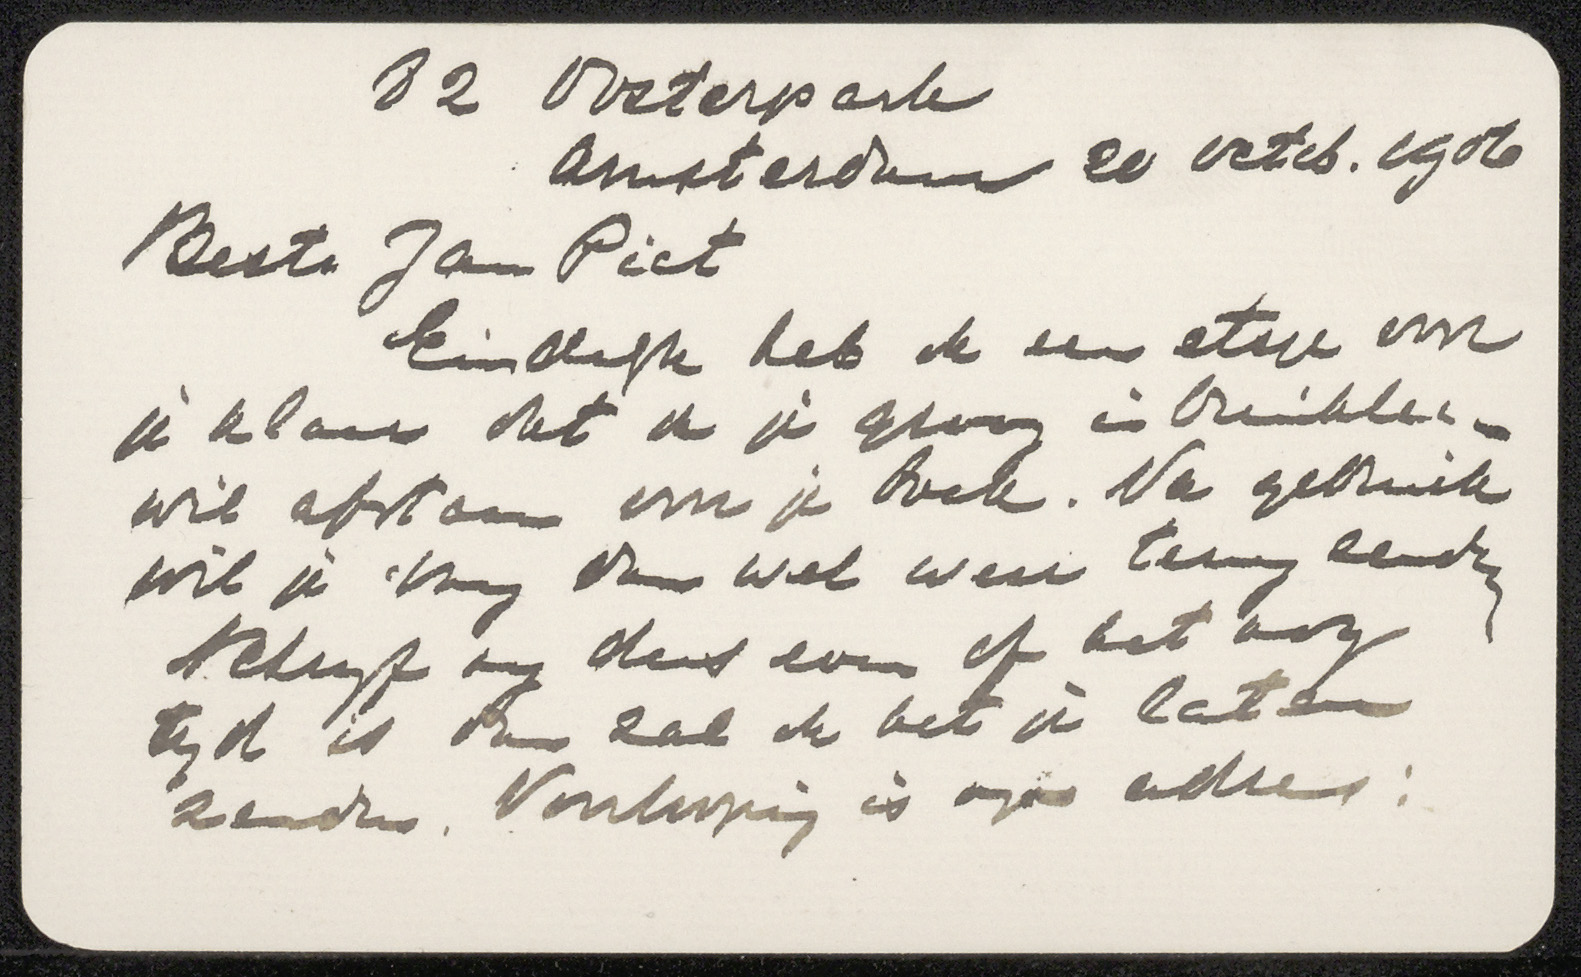 82 Oosterpark
Amsterdam 20 octob. 1906
Beste Jan Piet
Eindelijk heb ik een etsje voor
je klaar dat ik je graag in bruikleen
wil afstaan voor je boek. Na gebruik
wil je 't mij dan wel weer terug zenden
Schrijf mij dus even of het nog
tijd is dan zal ik het je laten
zenden. Voorloopig is mijn adres: